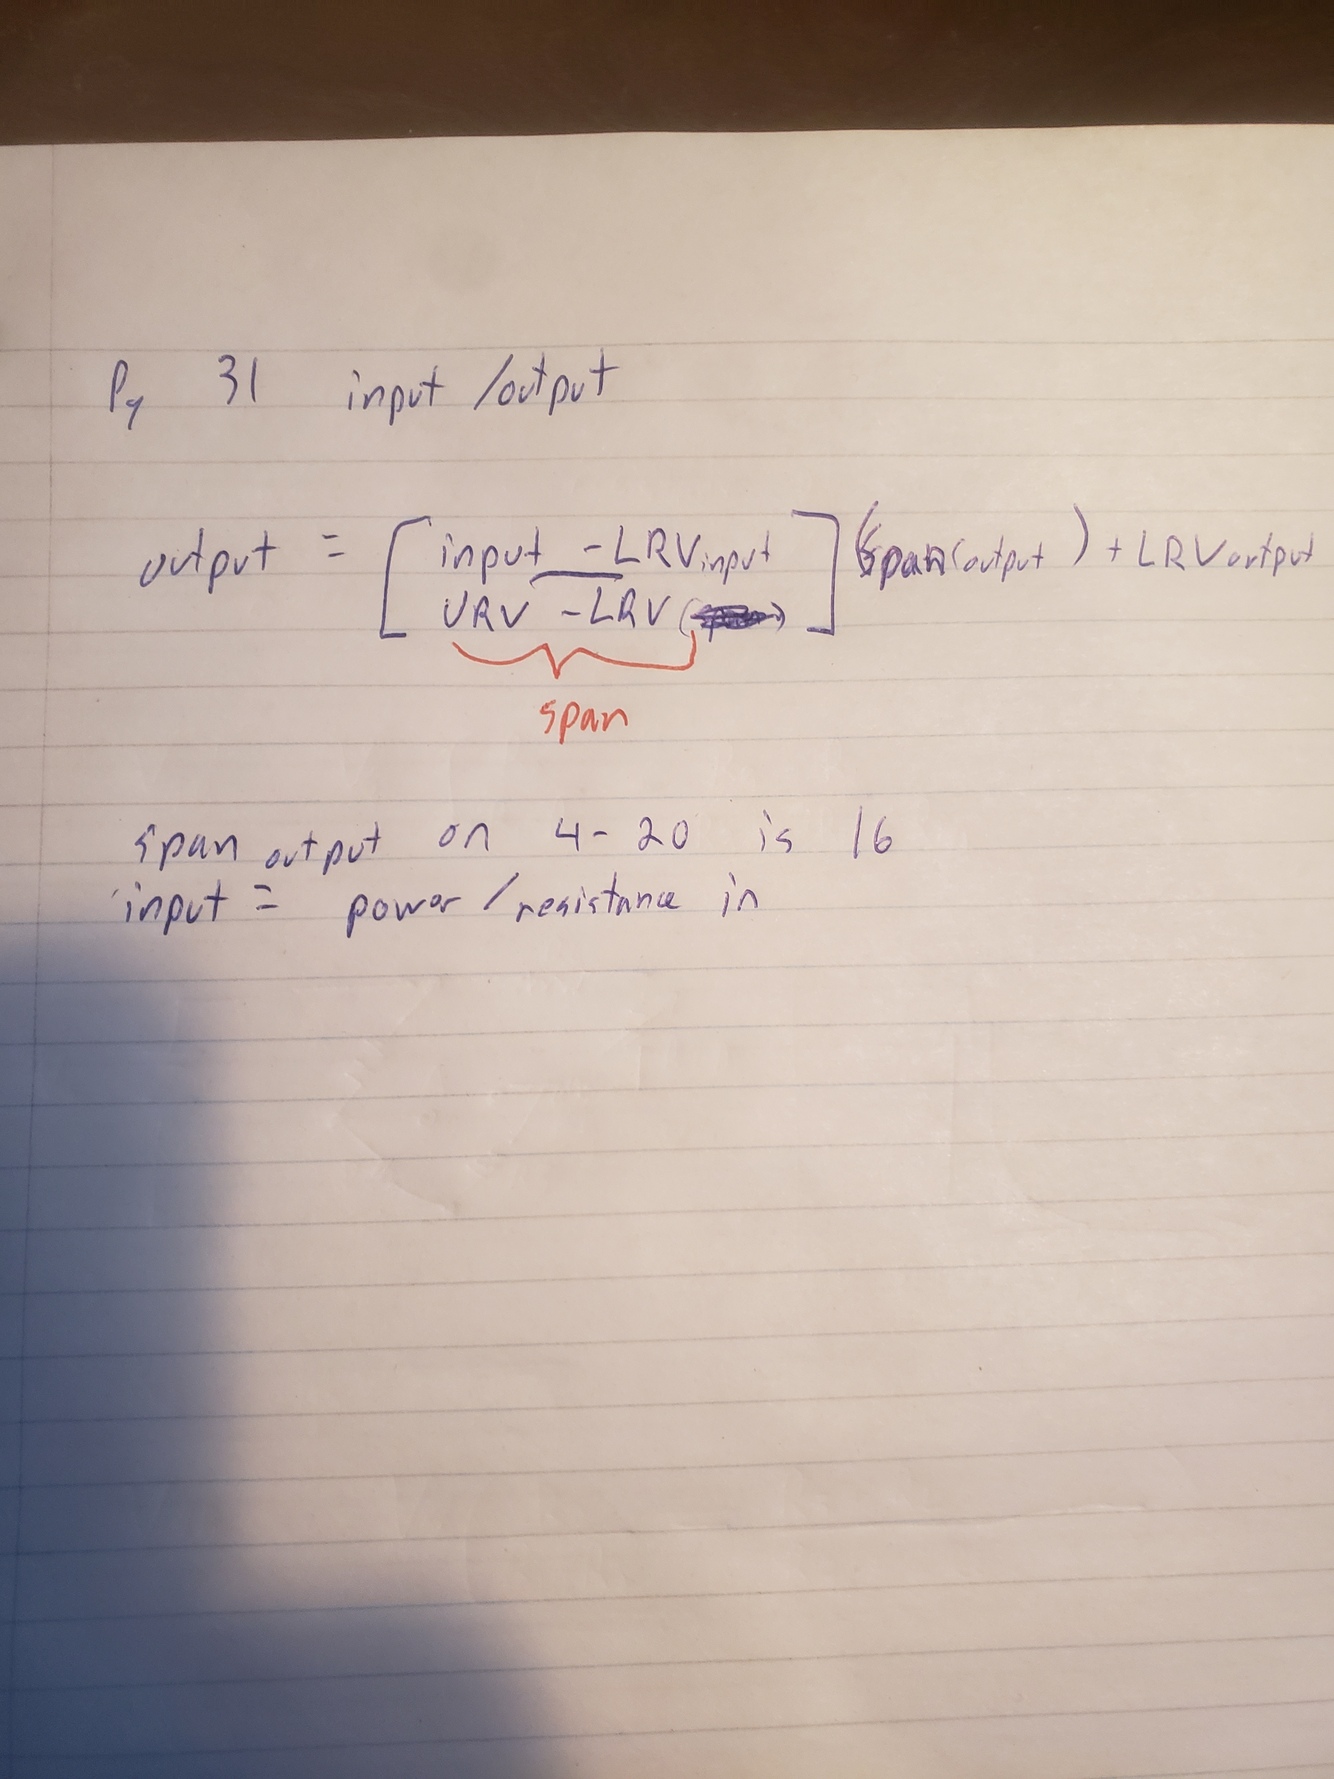 Pg 31 input/output
output = [ input - LRV input ] (span(output) + LRV output
URV - LRV ( )
span
span output on 4-20 is 16
input = power/resistance in